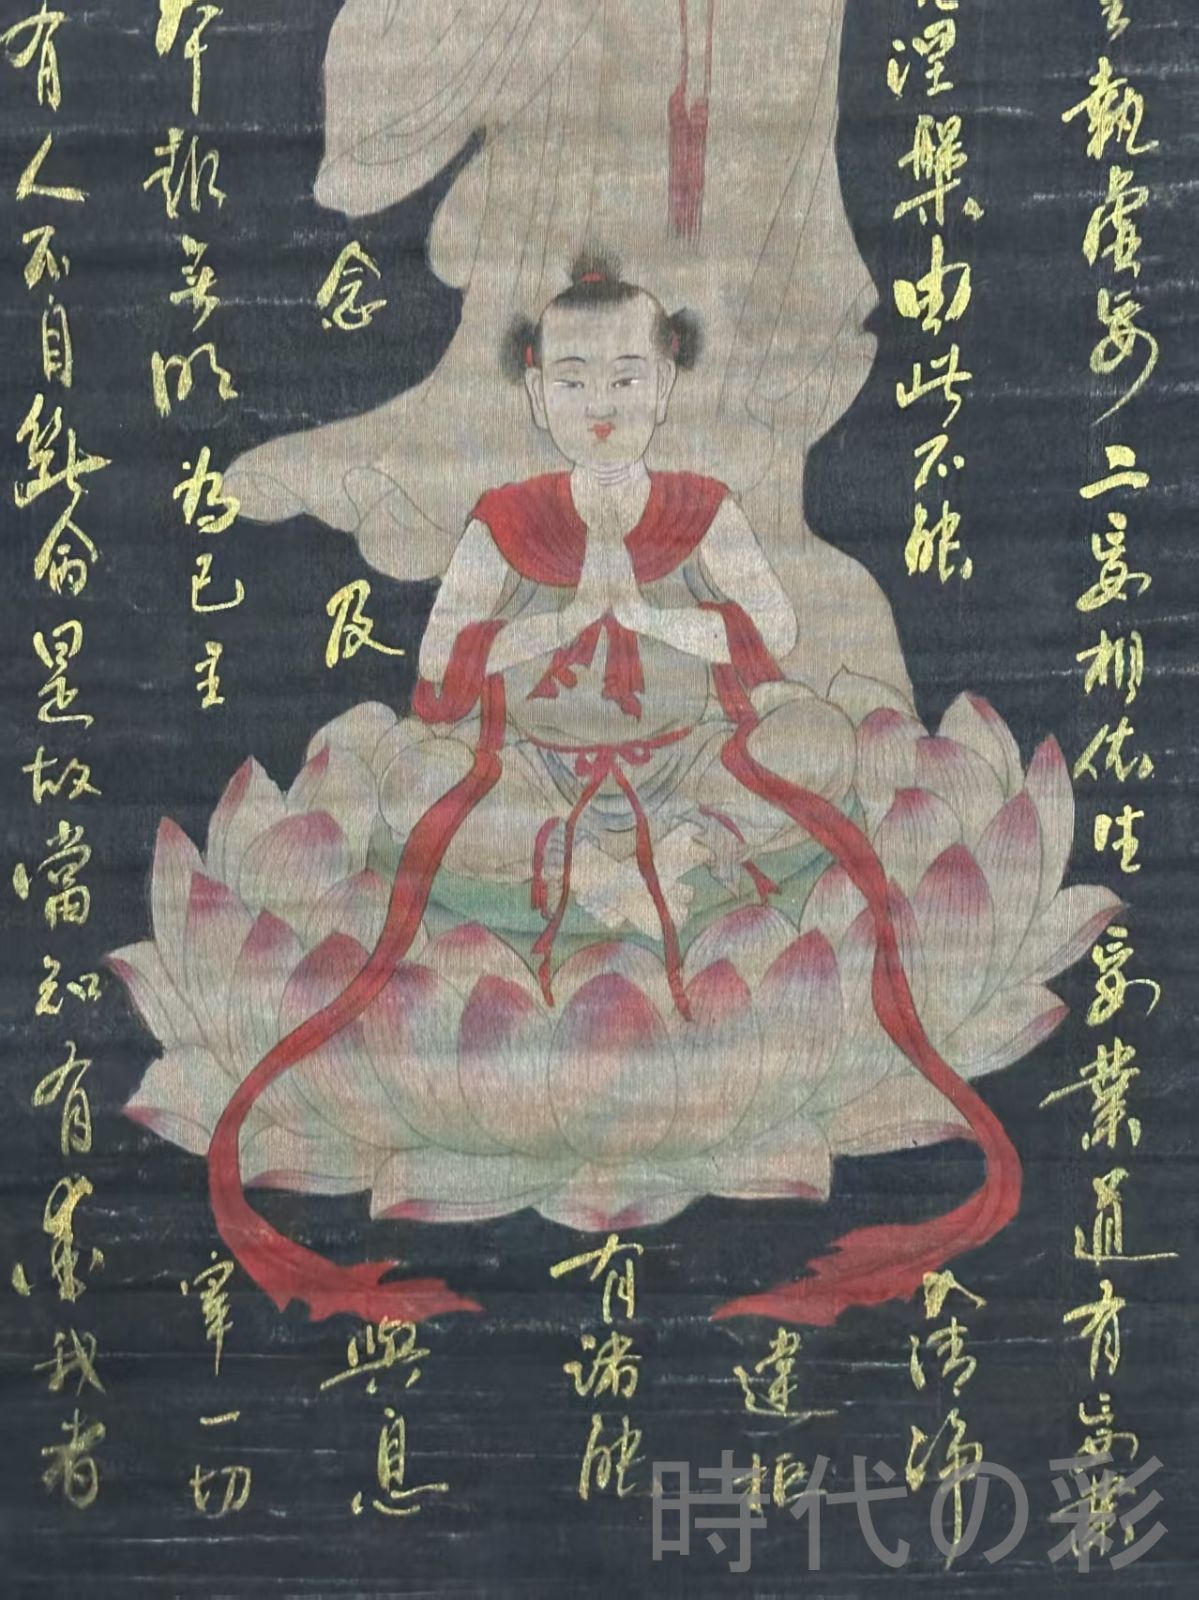 執虛妄二妄相依生妄業道有妄業
涅槃由此不能
入清淨
違拒
有諸能
念
及
與息
本起無明為己主
宰一切
有人不自斷命是故當知有愛我者
時代の彩